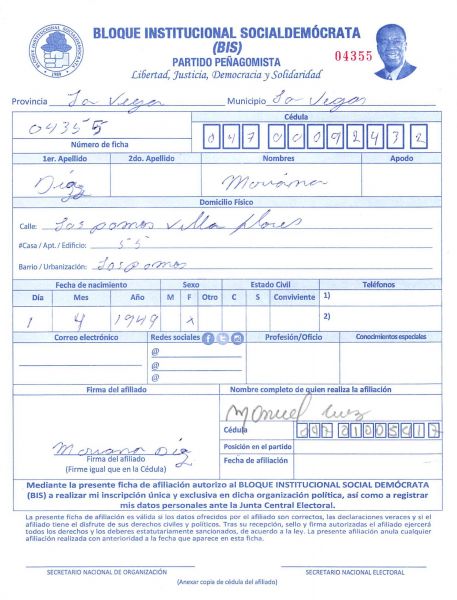 BLOQUE INSTITUCIONAL SOCIALDEMÓCRATA
(BIS)
PARTIDO PEÑAGOMISTA
Libertad, Justicia, Democracia y Solidaridad
04355
Provincia La Vega Municipio La Vega
04355
Número de ficha
Cédula
047 0009243 2
1er. Apellido 2do. Apellido Nombres Apodo
Díaz Mariana
Domicilio Físico
Calle: Los pomos Villa flores
#Casa / Apt. / Edificio: 55
Barrio / Urbanización: Los pomos
Fecha de nacimiento Sexo Estado Civil Teléfonos
Día Mes Año M F Otro C S Conviviente 1)
1 4 1949 x 2)
Correo electrónico Redes sociales Profesión/Oficio Conocimientos especiales
@
@
@
Firma del afiliado Nombre completo de quien realiza la afiliación
Manuel
Cédula
Mariana Díaz
Firma del afiliado
(Firme igual que en la Cédula)
Posición en el partido
Fecha de afiliación
Mediante la presente ficha de afiliación autorizo al BLOQUE INSTITUCIONAL SOCIAL DEMÓCRATA
(BIS) a realizar mi inscripción única y exclusiva en dicha organización política, así como a registrar
mis datos personales ante la Junta Central Electoral.
La presente ficha de afiliación es válida si los datos ofrecidos por el afiliado son correctos, las declaraciones veraces y si el
afiliado tiene el disfrute de sus derechos civiles y políticos. Tras su recepción, sello y firma autorizadas el afiliado ejercerá
todos los derechos y los deberes estatutariamente sancionados, de acuerdo a la ley. La presente afiliación anula cualquier
afiliación realizada con anterioridad a la fecha que aparece en esta ficha.
SECRETARIO NACIONAL DE ORGANIZACIÓN SECRETARIO NACIONAL ELECTORAL
(Anexar copia de cédula del afiliado)